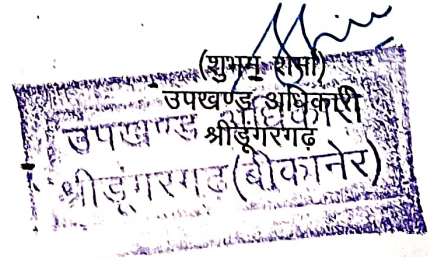 (शुभम् शर्मा)
उपखण्ड अधिकारी
श्रीडूंगरगढ़
उपखण्ड अधिकारी
श्रीडूंगरगढ़ (बीकानेर)